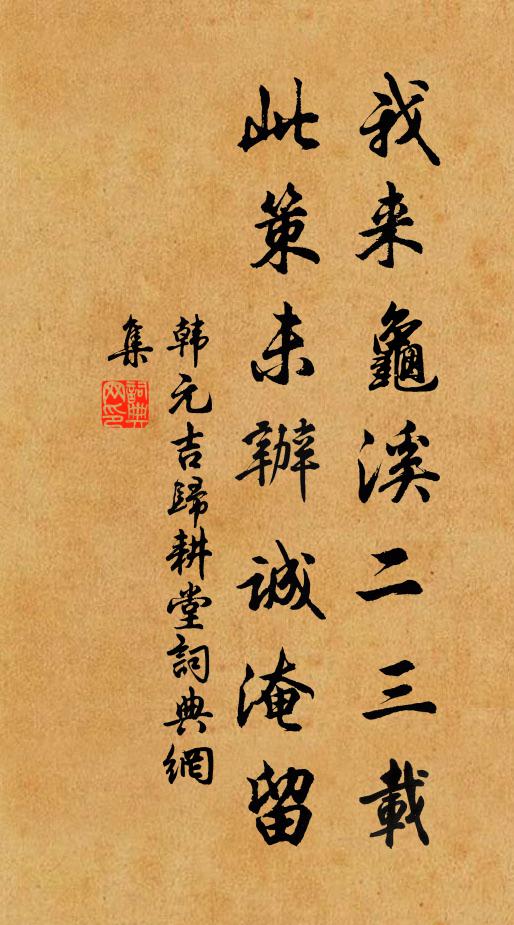 我来龜溪二三載
此策未辦誠淹留
韩元吉歸耕堂詞典網
集
詞典網印